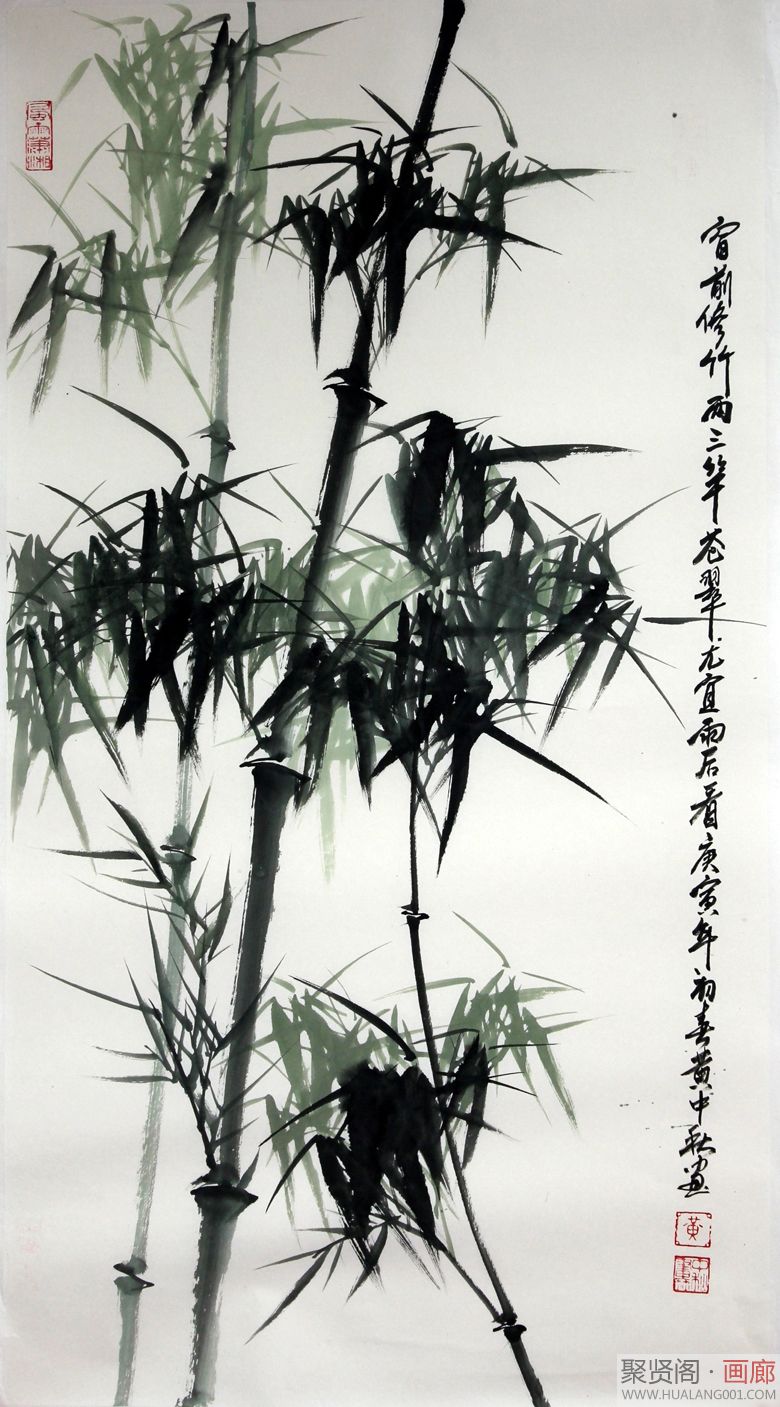 窗前修竹两三竿苍翠尤宜雨后看庚寅年初春黄中秋画
黄
聚贤阁·画廊
WWW.HUALANG001.COM